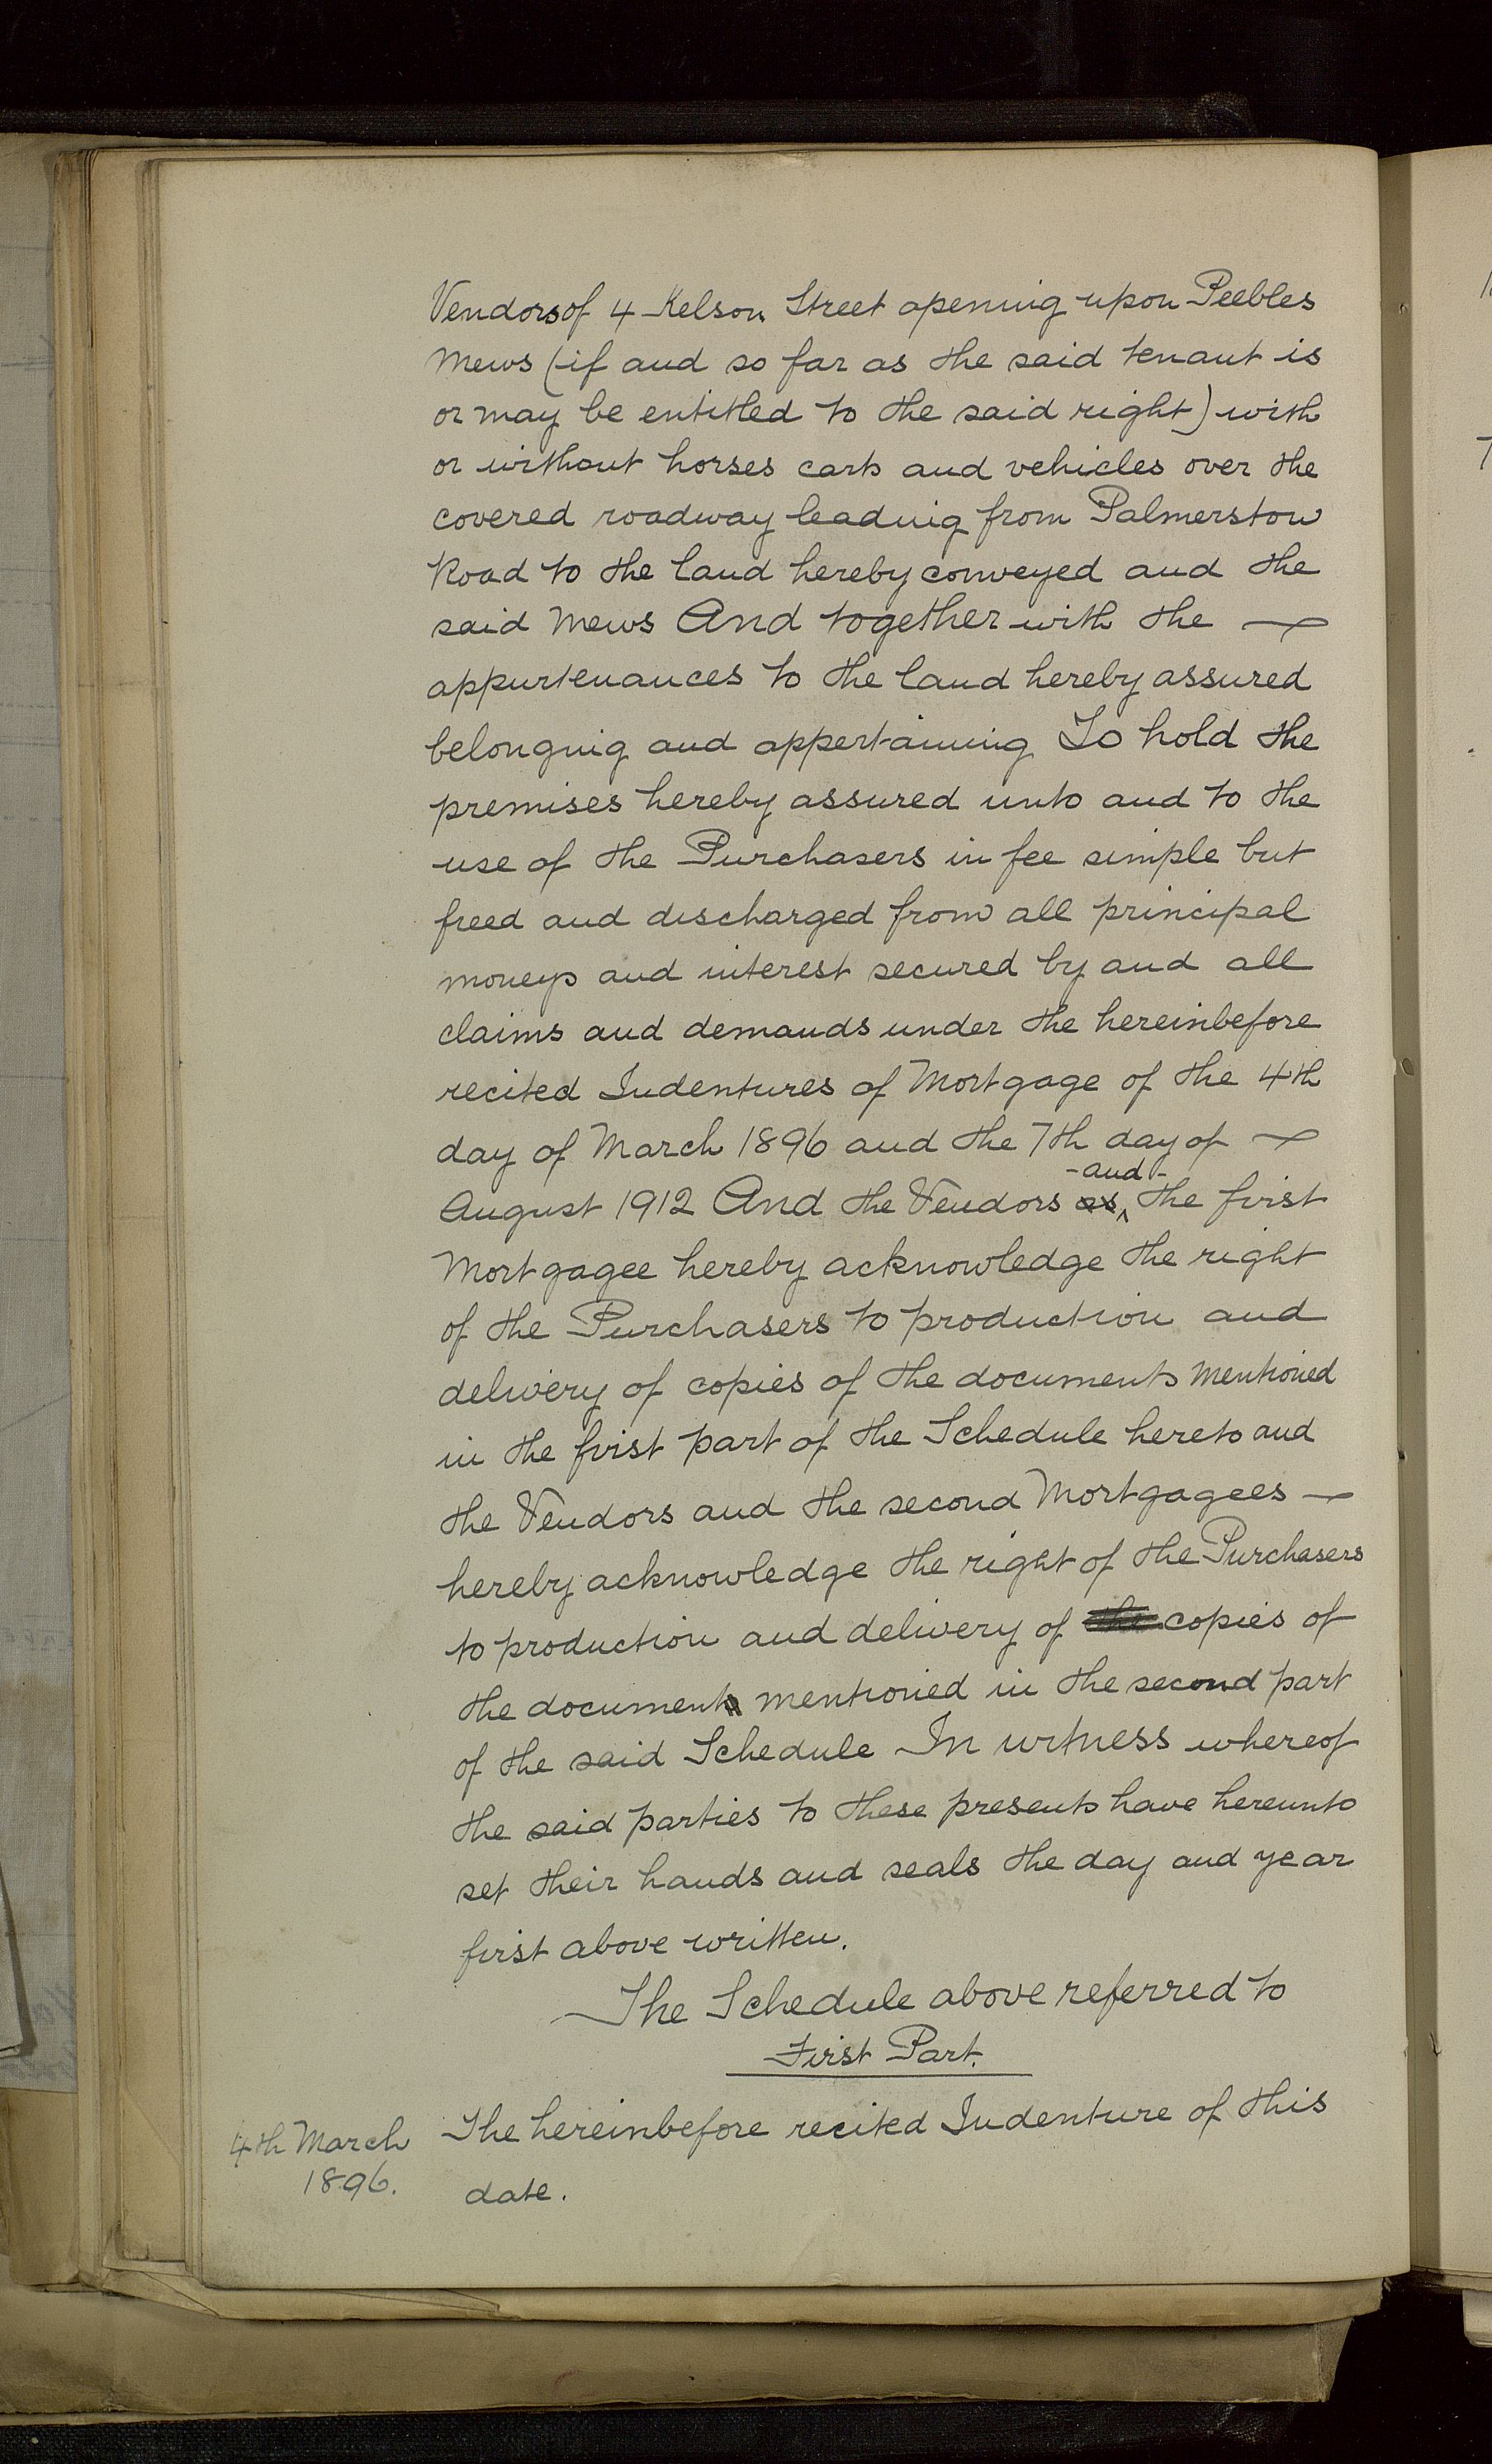 Vendors of 4 Kelson Street opening upon Peebles
Mews (if and so far as the said tenant is
or may be entitled to the said right) with
or without horses carts and vehicles over the
covered roadway leading from Palmerston
Road to the land hereby conveyed and the
said Mews And together with the
appurtenances to the land hereby assured
belonging and appertaining To hold the
premises hereby assured unto and to the
use of the Purchasers in fee simple but
freed and discharged from all principal
moneys and interest secured by and all
claims and demands under the hereinbefore
recited Indentures of Mortgage of the 4th
day of March 1896 and the 7th day of
-and-
August 1912 And the Vendors as the first
Mortgagee hereby acknowledge the right
of the Purchasers to production and
delivery of copies of the documents mentioned
in the first part of the Schedule hereto and
the Vendors and the second Mortgagees
hereby acknowledge the right of the Purchasers
to production and delivery of the copies of
the documents mentioned in the second part
of the said Schedule In witness whereof
the said parties to these presents have hereunto
set their hands and seals the day and year
first above written.
The Schedule above referred to
First Part.
4th March
1896.
The hereinbefore recited Indenture of this
date.